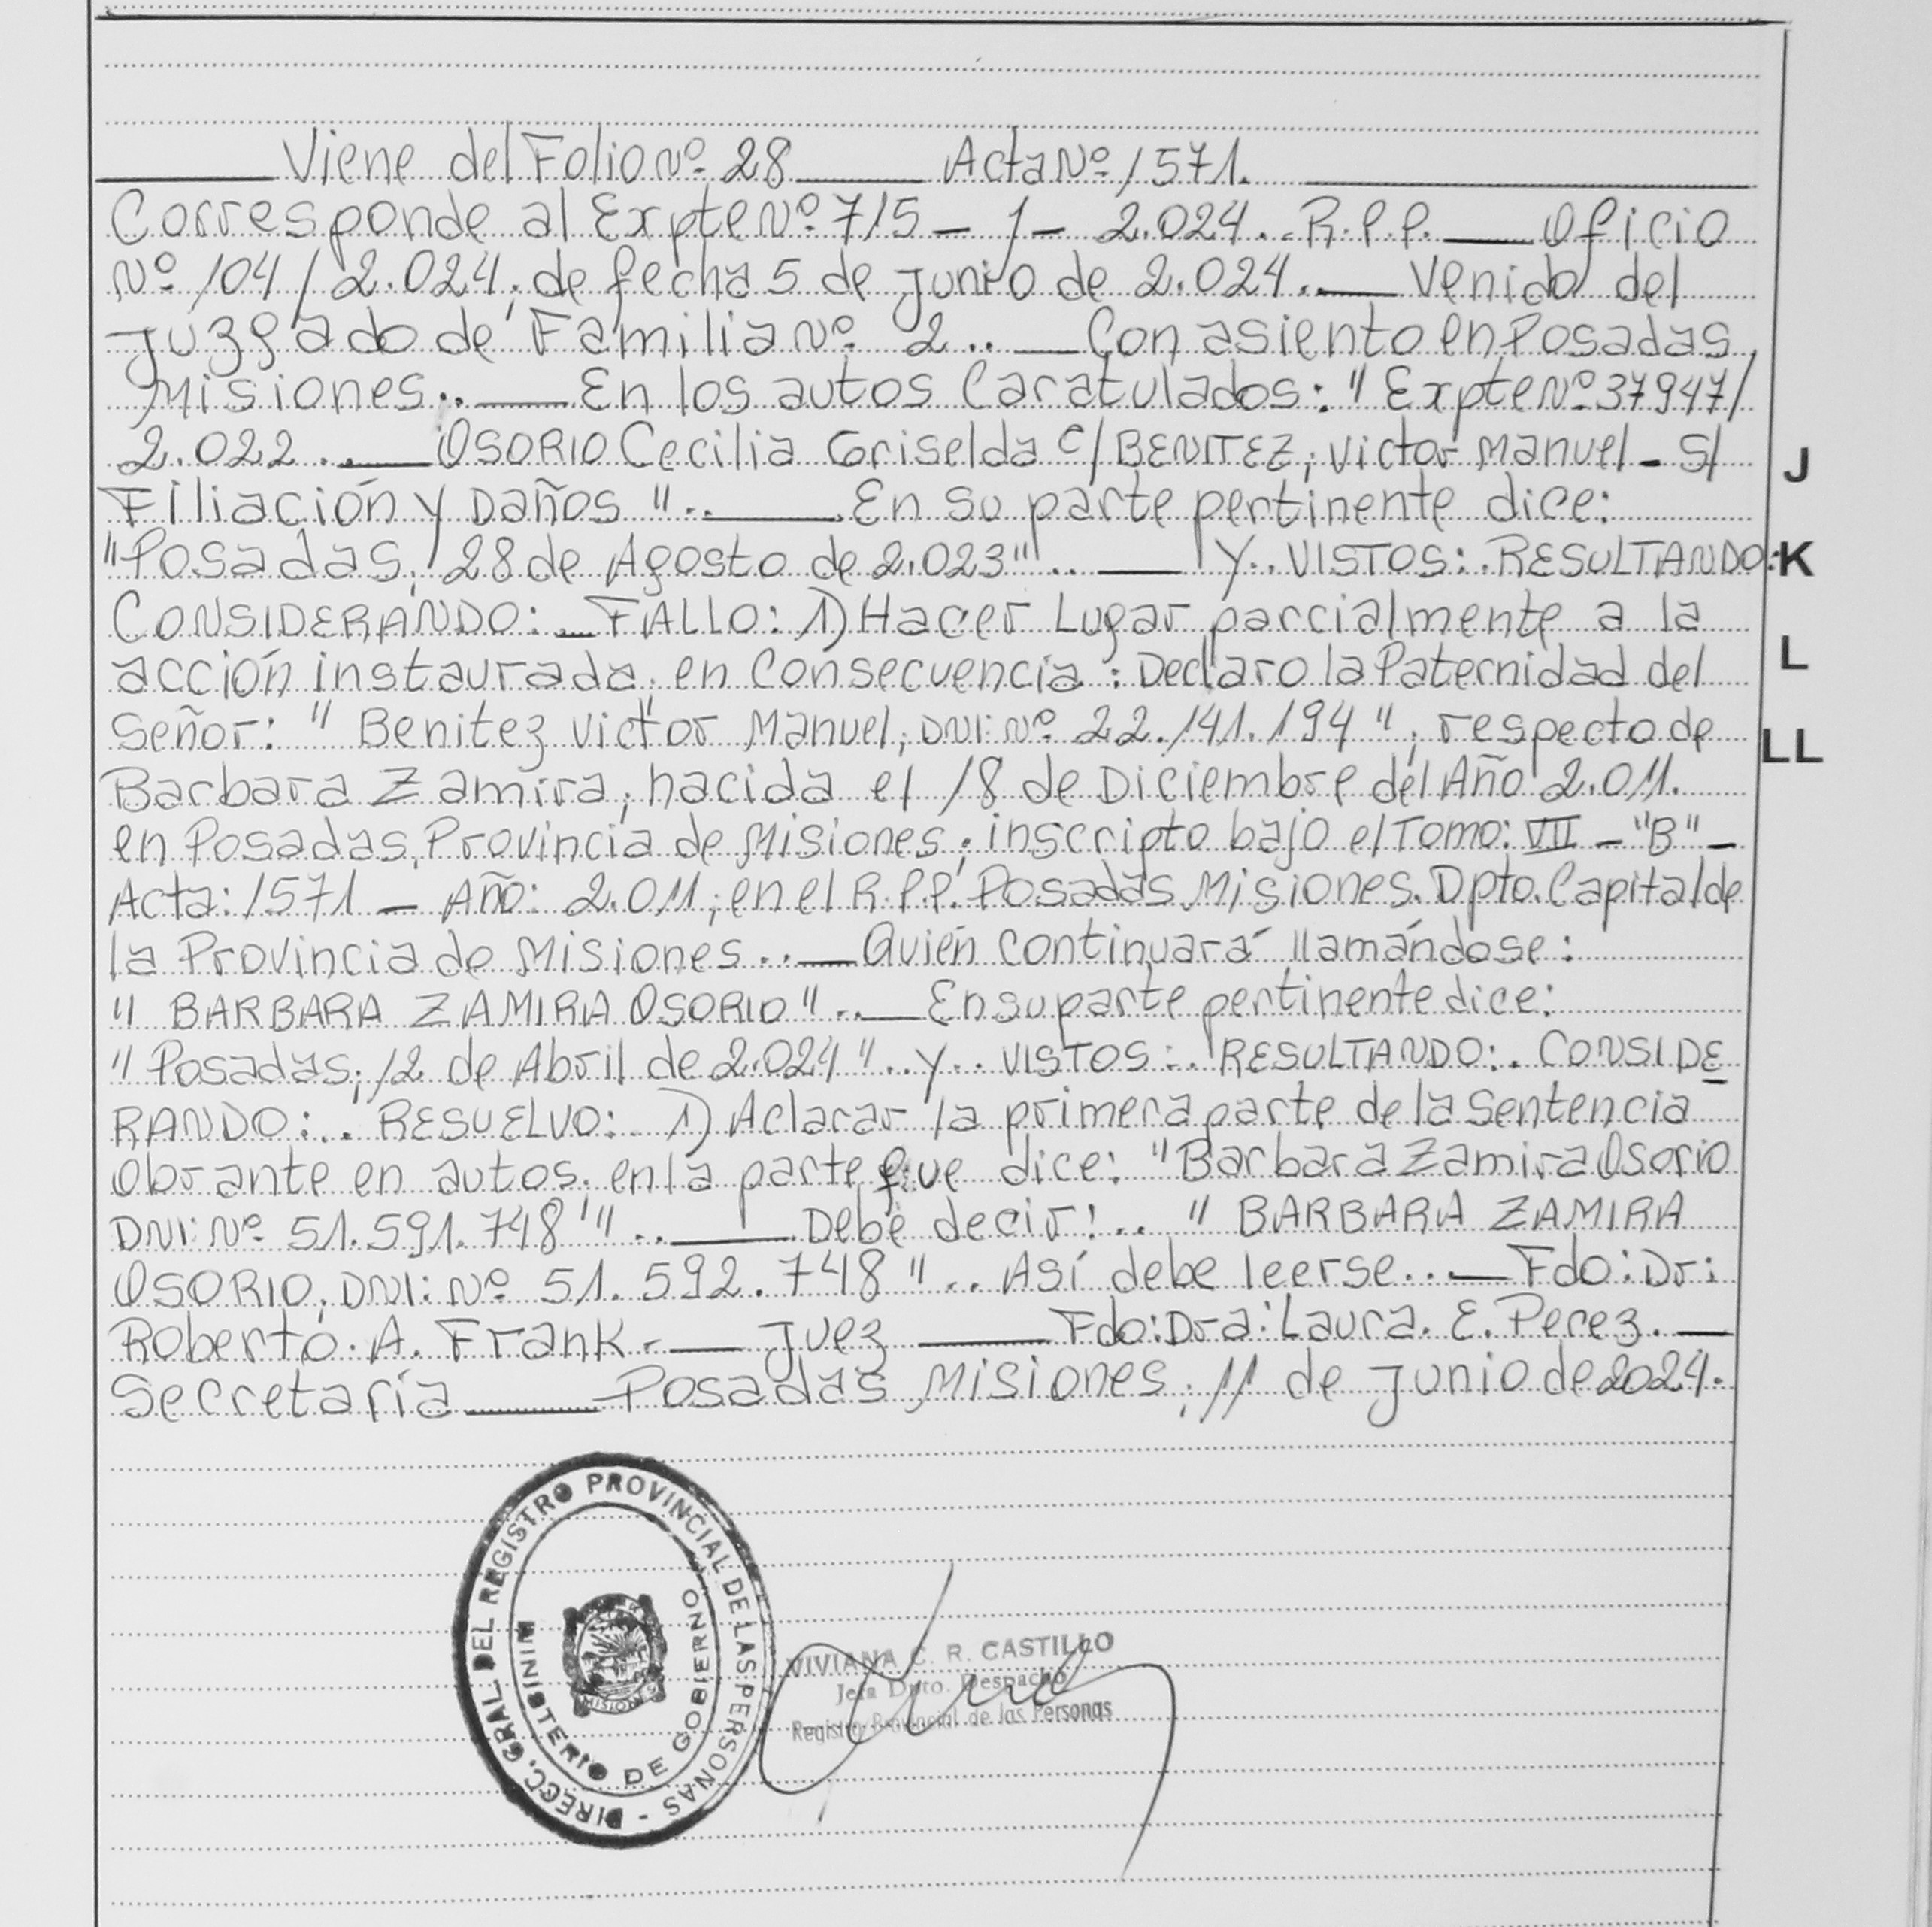 Viene del Folio Nº 28 ___ Acta Nº 1571.
Corresponde al Expte Nº 715 - 1 - 2.024. R.P.P. ___ Oficio
Nº 104 / 2.024, de fecha 5 de Junio de 2.024. ___ Venido del
Juzgado de Familia Nº 2.. ___ Con asiento en Posadas
Misiones.. ___ En los autos Caratulados: "Expte Nº 37947/
2.022.. ___ OSORIO Cecilia Griselda C/ BENITEZ, Victor Manuel - S/
Filiación y Daños".. ___ En su parte pertinente dice:
"Posadas, 28 de Agosto de 2.023".. ___ Y.. VISTOS:. RESULTANDO:
CONSIDERANDO: FALLO: 1) Hacer Lugar parcialmente a la
acción instaurada, en Consecuencia: Declaro la Paternidad del
Señor: "Benitez Victor Manuel, DNI: Nº 22.141.194", respecto de
Barbara Zamira, nacida el 18 de Diciembre del Año 2.011.
en Posadas, Provincia de Misiones, inscripto bajo el Tomo: VII - "B" -
Acta: 1571 - Año: 2.011, en el R.P.P. Posadas Misiones. Dpto. Capital de
la Provincia de Misiones.. ___ Quién Continuará llamándose:
"BARBARA ZAMIRA OSORIO".. ___ En su parte pertinente dice:
"Posadas, 12 de Abril de 2.024".. Y.. VISTOS:. RESULTANDO:. CONSIDE
RANDO:.. RESUELVO: 1) Aclarar la primera parte de la Sentencia
Obrante en autos, en la parte que dice: "Barbara Zamira Osorio
DNI: Nº 51.591.748'".. ___ Debe decir:.. "BARBARA ZAMIRA
OSORIO, DNI: Nº 51.592.748".. Así debe leerse.. ___ Fdo: Dr:
Roberto. A. Frank. ___ Juez ___ Fdo: Dra: Laura. E. Perez. ___
Secretaría ___ Posadas Misiones, 11 de Junio de 2024.
J
K
L
LL
DIRECC. GRAL. DEL REGISTRO PROVINCIAL DE LAS PERSONAS -
MINISTERIO DE GOBIERNO
MISIONES
VIVIANA C. R. CASTILLO
Jefa Dpto. Despacho
Registro Provincial de las Personas